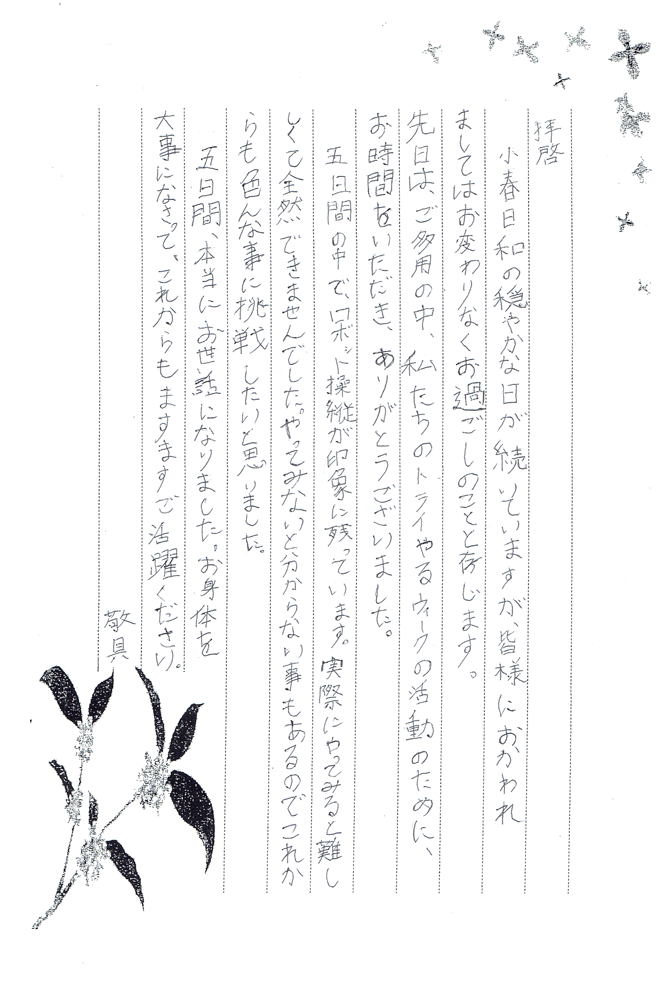 拝啓
小春日和の穏やかな日が続いていますが、皆様におかわれ
ましてはお変わりなくお過ごしのことと存じます。
先日は、ご多用の中、私たちのトライやるウィークの活動のために、
お時間をいただき、ありがとうございました。
五日間の中で、ロボット操縦が印象に残っています。実際にやってみると難し
くて全然できませんでした。やってみないと分からない事もあるのでこれか
らも色んな事に挑戦したいと思いました。
五日間、本当にお世話になりました。お身体を
大事になさって、これからもますますご活躍ください。
敬具